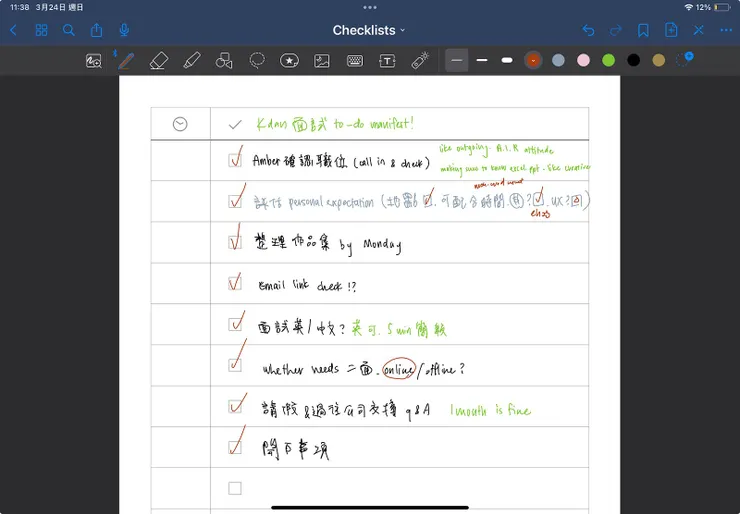 11:38 3月24日 週日
12%
Checklists
Kdan 面試 to-do manifest!
Amber 確認職位 (call in & check)
like outgoing. A.I.R attitude
making sure to know excel ppt. like curative
personal expectation ( 可配合時間 ? UX?
整理作品集 by Monday
Email link check!?
面試英/中文? 英可. 5 min 簡報
whether needs 二面. online/offline?
請假&過往公司交接 q&A 1 month is fine